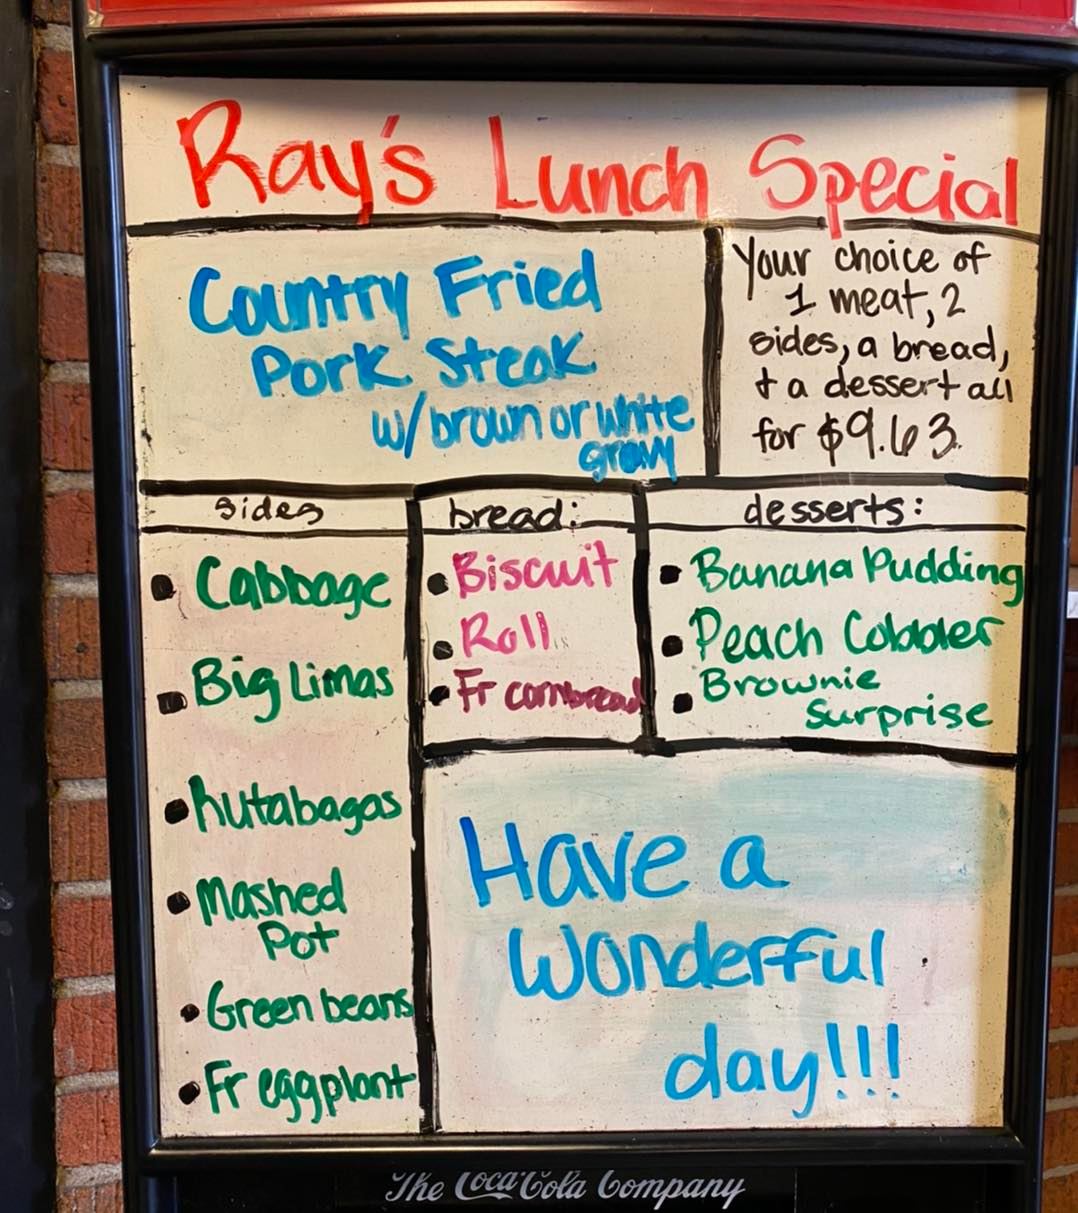 Ray's Lunch Special
Country Fried
Pork Steak
w/ brown or white
gravy
Your choice of
1 meat, 2
sides, a bread,
+ a dessert all
for $9.63
sides
• Cabbage
• Big Limas
• Rutabagas
• Mashed
Pot
• Green beans
• Fr eggplant
bread:
• Biscuit
• Roll
• Fr cornbread
desserts:
• Banana Pudding
• Peach Cobbler
• Brownie
Surprise
Have a
Wonderful
day!!!
The Coca-Cola Company